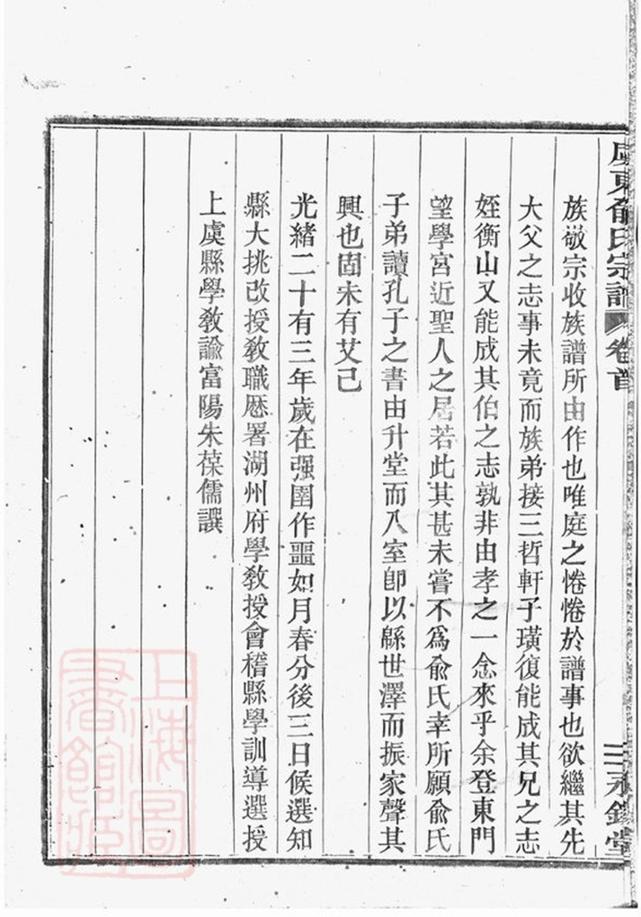 虞東俞氏宗譜 卷首 三 永錫堂
族敬宗收族譜所由作也唯庭之惓惓於譜事也欲繼其先
大父之志事未竟而族弟接三哲軒子璜復能成其兄之志
姪衡山又能成其伯之志孰非由孝之一念來乎余登東門
望學宮近聖人之居若此其甚未嘗不爲俞氏幸所願俞氏
子弟讀孔子之書由升堂而入室卽以緜世澤而振家聲其
興也固未有艾已
光緒二十有三年歲在强圉作噩如月春分後三日候選知
縣大挑改授敎職歷署湖州府學敎授會稽縣學訓導選授
上虞縣學敎諭富陽朱葆儒譔
上海圖
書館藏